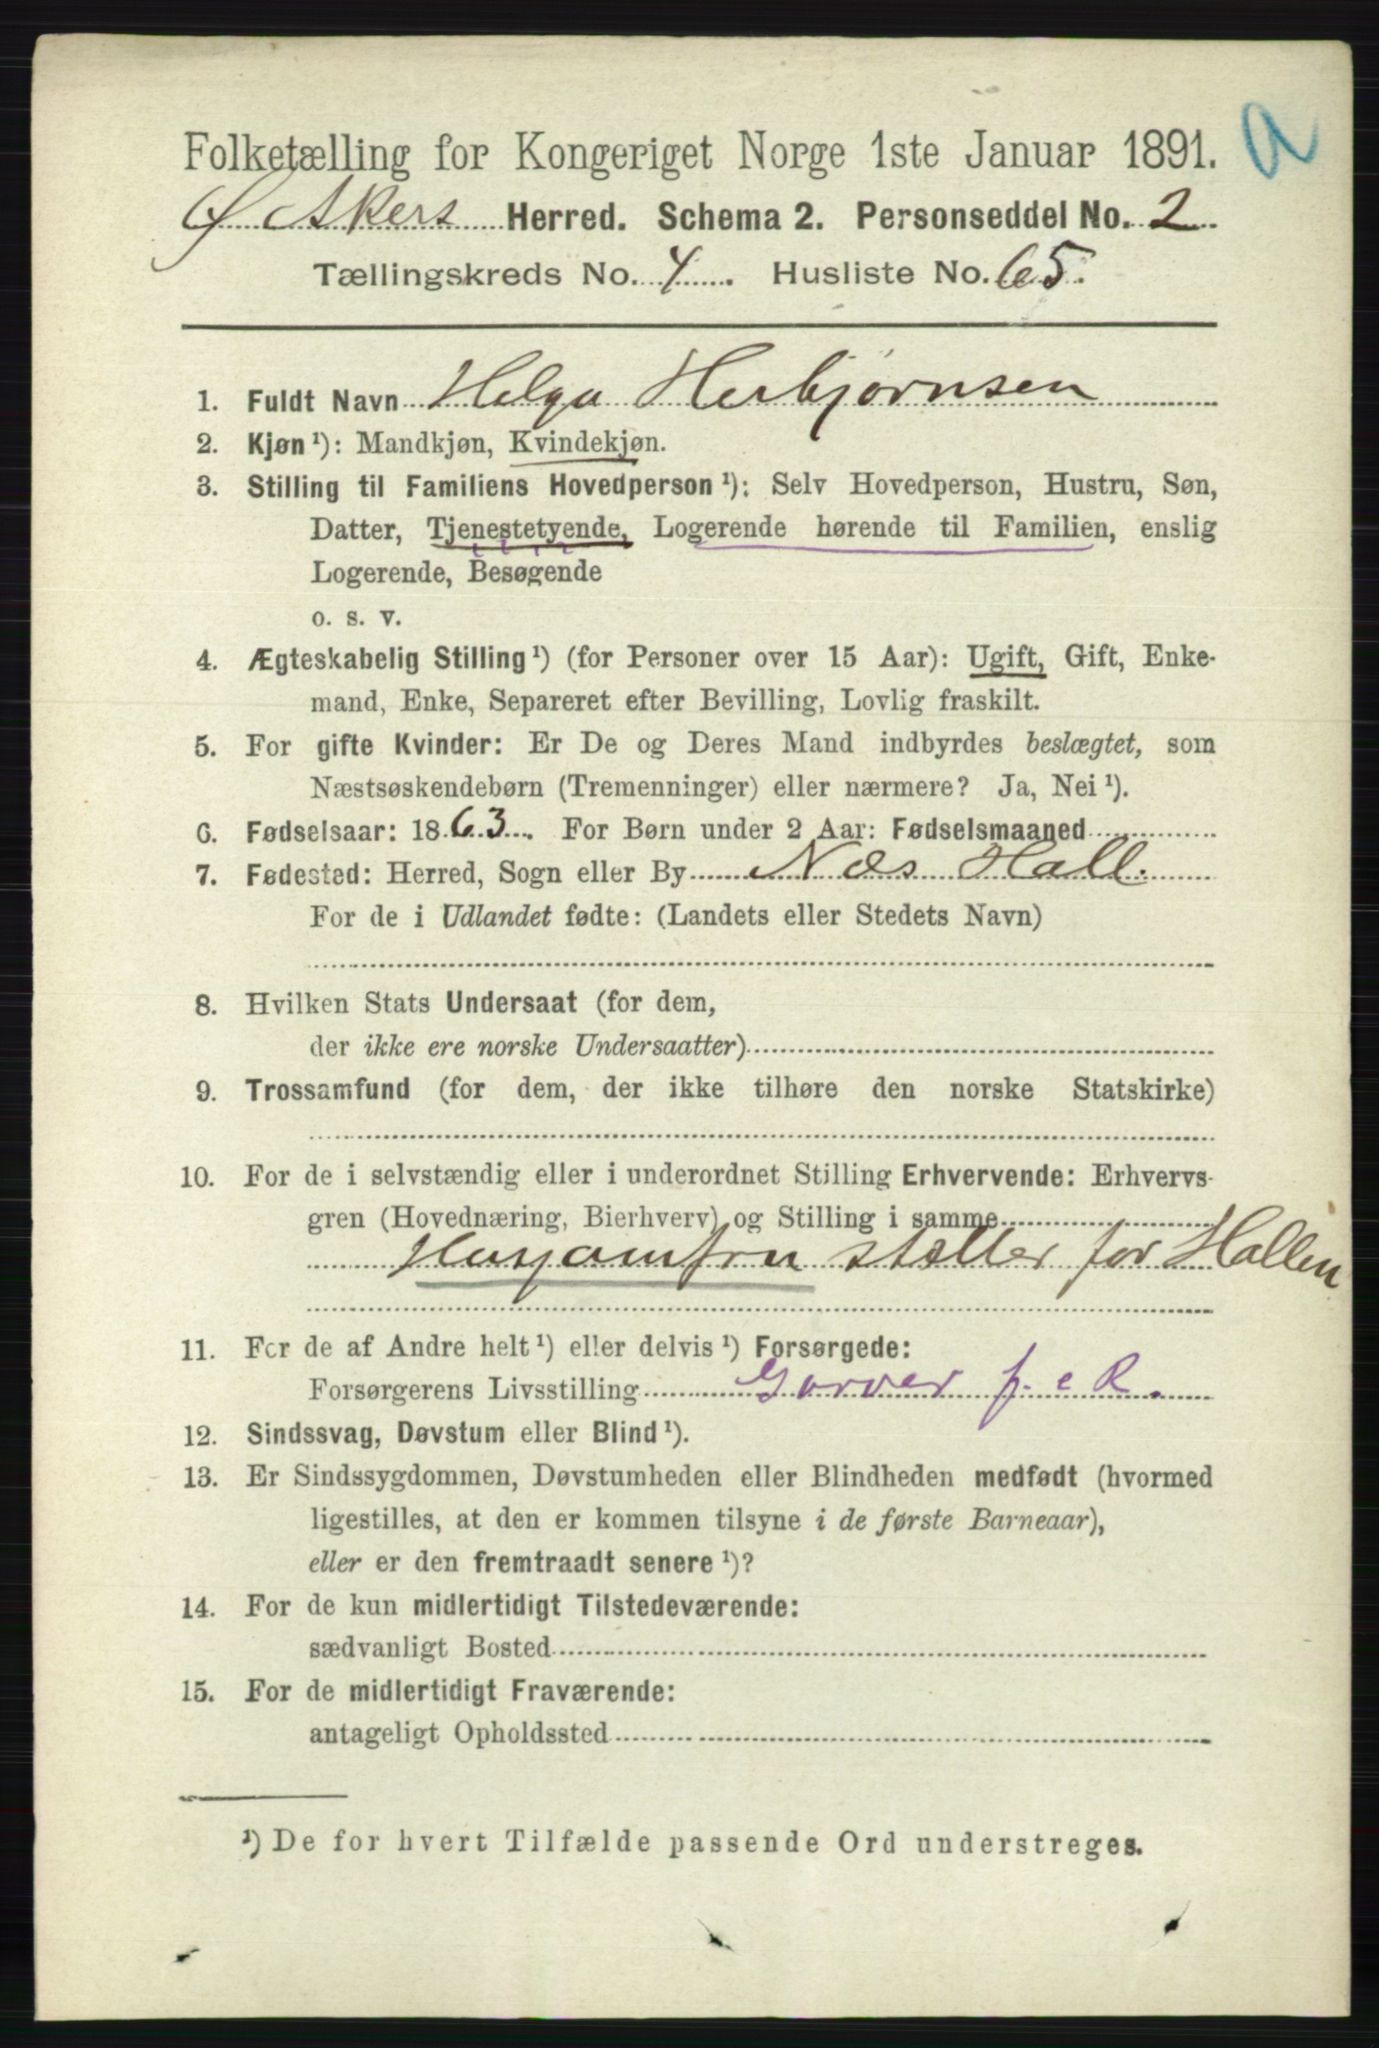 a
Folketælling for Kongeriget Norge 1ste Januar 1891.
Ø Akers Herred. Schema 2. Personseddel No. 2
Tællingskreds No. 4. Husliste No. 65.
1. Fuldt Navn Helga Herbjørnsen
2. Kjøn¹): Mandkjøn, Kvindekjøn.
3. Stilling til Familiens Hovedperson¹): Selv Hovedperson, Hustru, Søn,
Datter, Tjenestetyende, Logerende hørende til Familien, enslig
Logerende, Besøgende
o. s. v.
4. Ægteskabelig Stilling¹) (for Personer over 15 Aar): Ugift, Gift, Enke-
mand, Enke, Separeret efter Bevilling, Lovlig fraskilt.
5. For gifte Kvinder: Er De og Deres Mand indbyrdes beslægtet, som
Næstsøskendebørn (Tremenninger) eller nærmere? Ja, Nei¹).
6. Fødselsaar: 1863. For Børn under 2 Aar: Fødselsmaaned
7. Fødested: Herred, Sogn eller By Næs Hall.
For de i Udlandet fødte: (Landets eller Stedets Navn)
8. Hvilken Stats Undersaat (for dem,
der ikke ere norske Undersaatter)
9. Trossamfund (for dem, der ikke tilhøre den norske Statskirke)
10. For de i selvstændig eller i underordnet Stilling Erhvervende: Erhvervs-
gren (Hovednæring, Bierhverv) og Stilling i samme
Husjomfru steller for Hallin
11. For de af Andre helt¹) eller delvis¹) Forsørgede:
Forsørgerens Livsstilling Garver f. e R.
12. Sindssvag, Døvstum eller Blind¹).
13. Er Sindssygdommen, Døvstumheden eller Blindheden medfødt (hvormed
ligestilles, at den er kommen tilsyne i de første Barneaar),
eller er den fremtraadt senere¹)?
14. For de kun midlertidigt Tilstedeværende:
sædvanligt Bosted
15. For de midlertidigt Fraværende:
antageligt Opholdssted
¹) De for hvert Tilfælde passende Ord understreges.